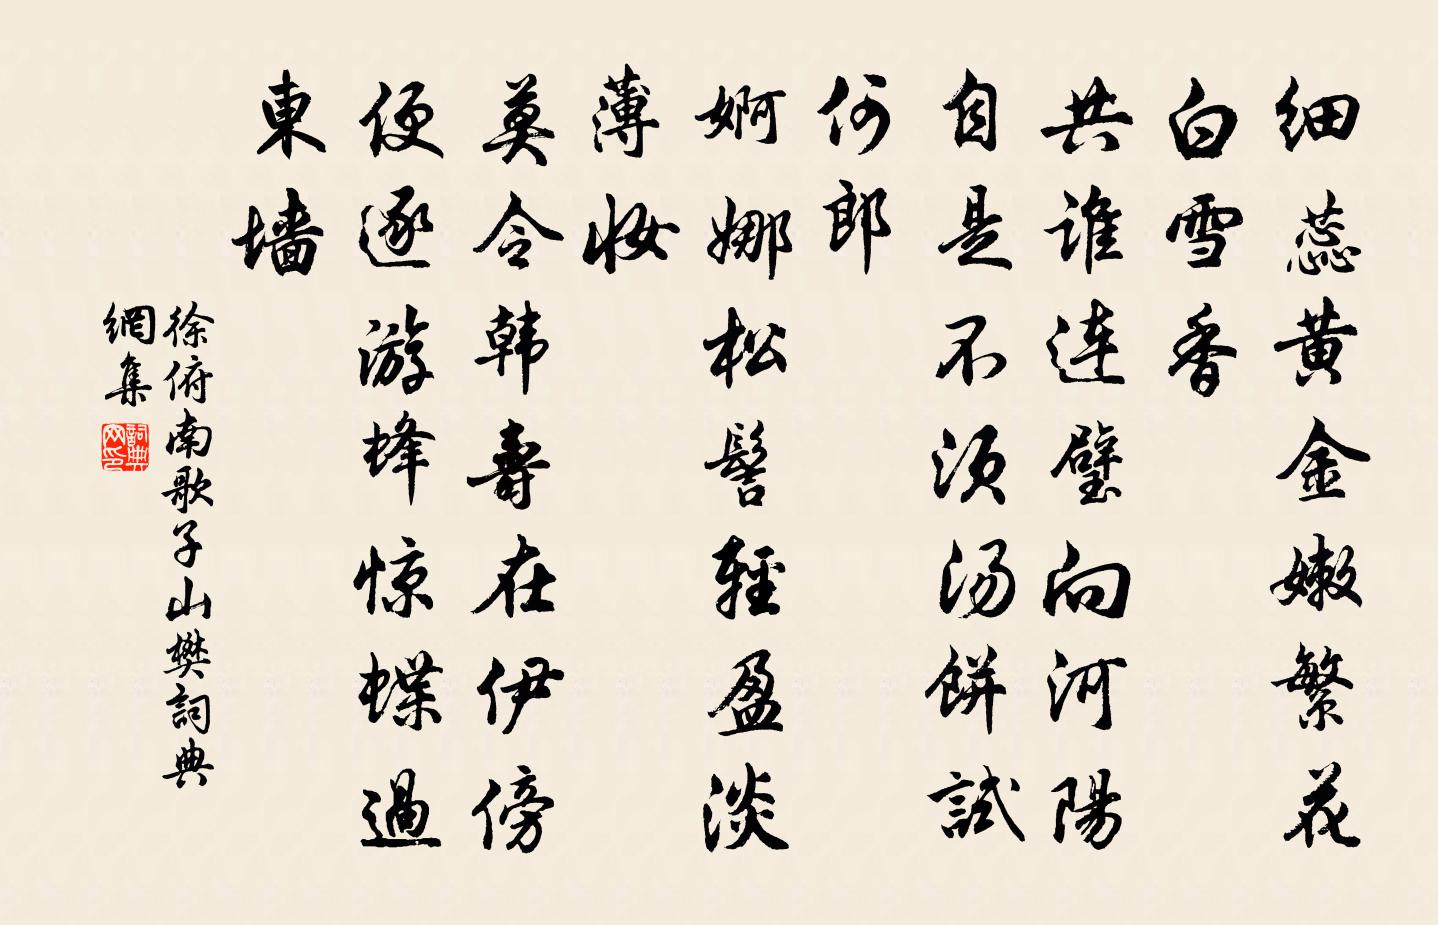 细蕊黄金嫩繁花
白雪香
共谁连璧向河陽
自是不须汤餅試
何郎
婀娜松髻輕盈淡
薄妝
莫令韩壽在伊傍
便逐游蜂惊蝶過
東墙
徐俯南歌子山樊詞典
網集
詞典
网印